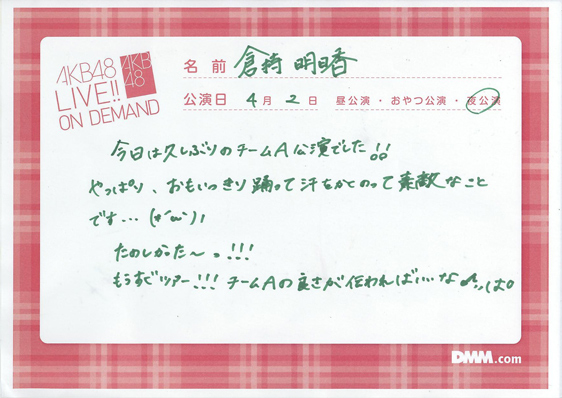 AKB48
LIVE!!
ON DEMAND
AKB
48
名前 倉持明日香
公演日 4月2日 昼公演・おやつ公演・夜公演
今日は久しぶりのチームA公演でした!!
やっぱり、おもいっきり踊って汗をかくのって素敵なこと
です…
たのしかった〜っ!!!
もうすぐツアー!!! チームAの良さが伝わればいいな
DMM.com